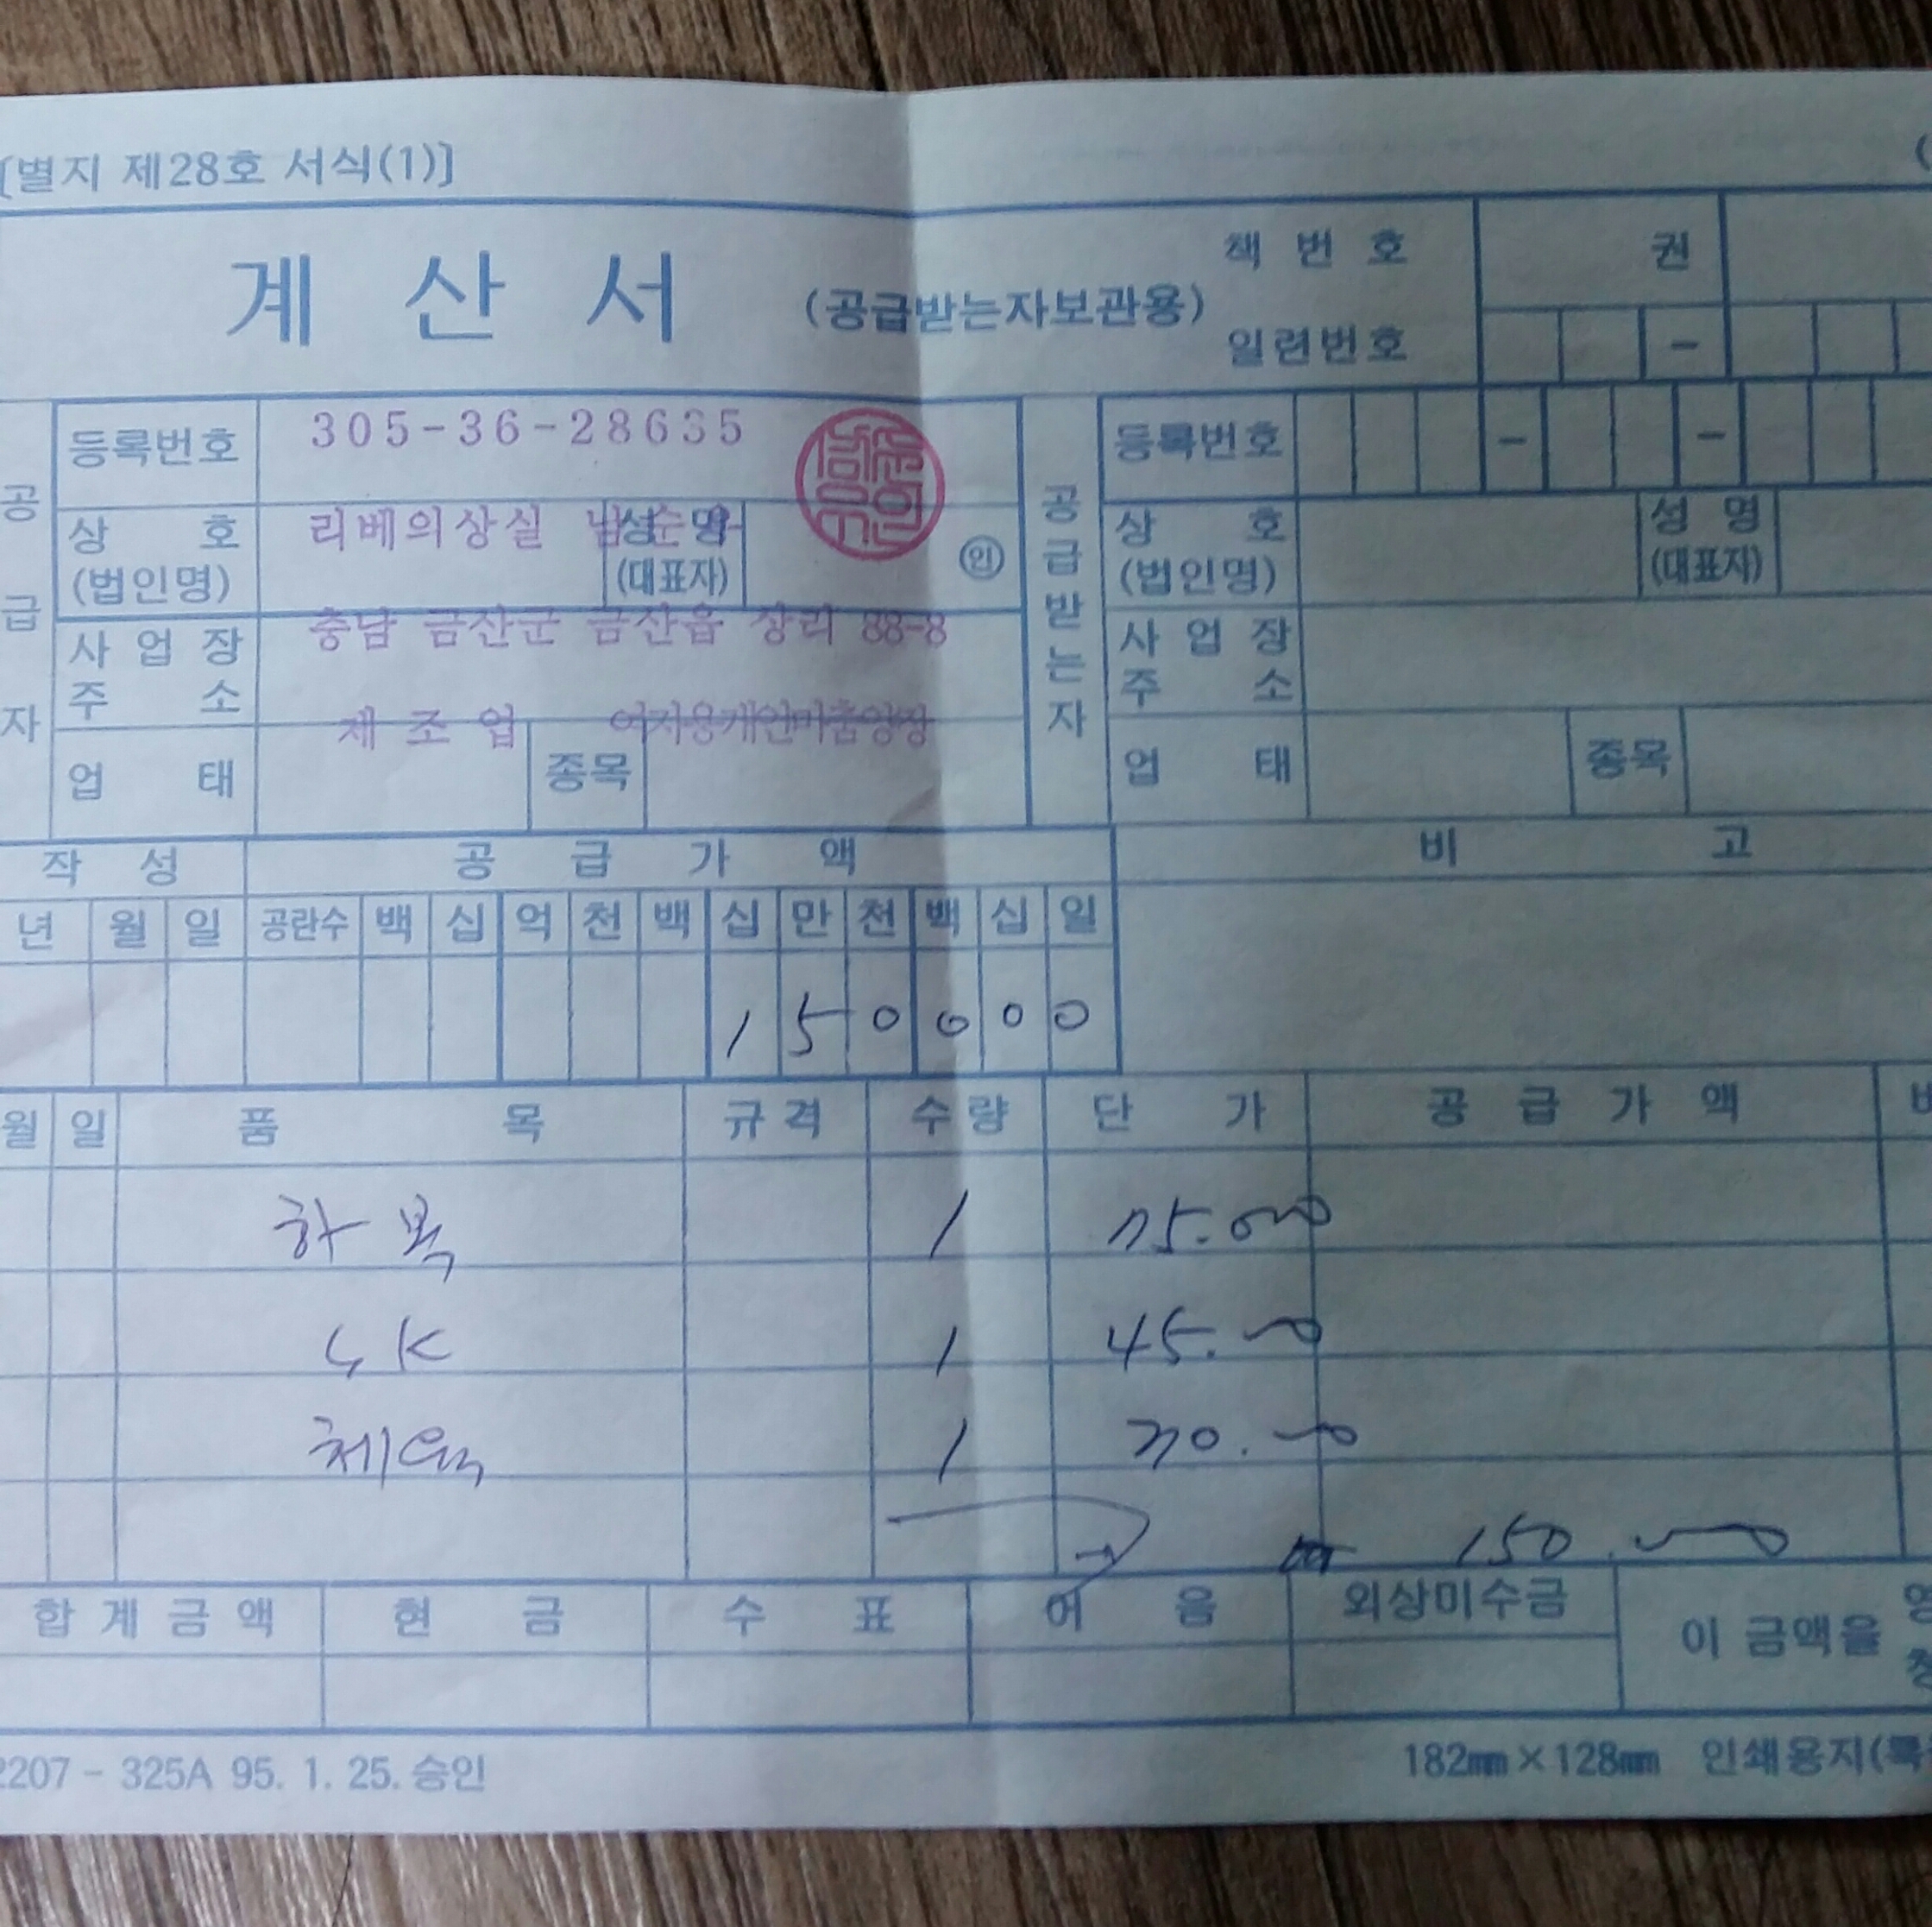 [별지 제28호 서식(1)]
계 산 서 (공급받는자보관용)
책 번 호 권
일련번호 -
공급자
등록번호 305-36-28635
상 호 (법인명) 리베의상실 성 명 (대표자) 인
사업장 주 소 충남 금산군 금산읍 상리 88-8
업 태 제 조 업 종목 여자용개인마춤양장
공급받는자
등록번호 - -
상 호 (법인명) 성 명 (대표자)
사업장 주 소
업 태 종목
작 성 공 급 가 액 비 고
년 월 일 공란수 백 십 억 천 백 십 만 천 백 십 일
1 5 0 0 0 0
월 일 품 목 규격 수량 단 가 공 급 가 액
하복 1 75.000
1 45.000
체육 1 30.000
150.000
합계금액 현 금 수 표 어 음 외상미수금 이 금액을
2207 - 325A 95. 1. 25. 승인
182㎜×128㎜ 인쇄용지